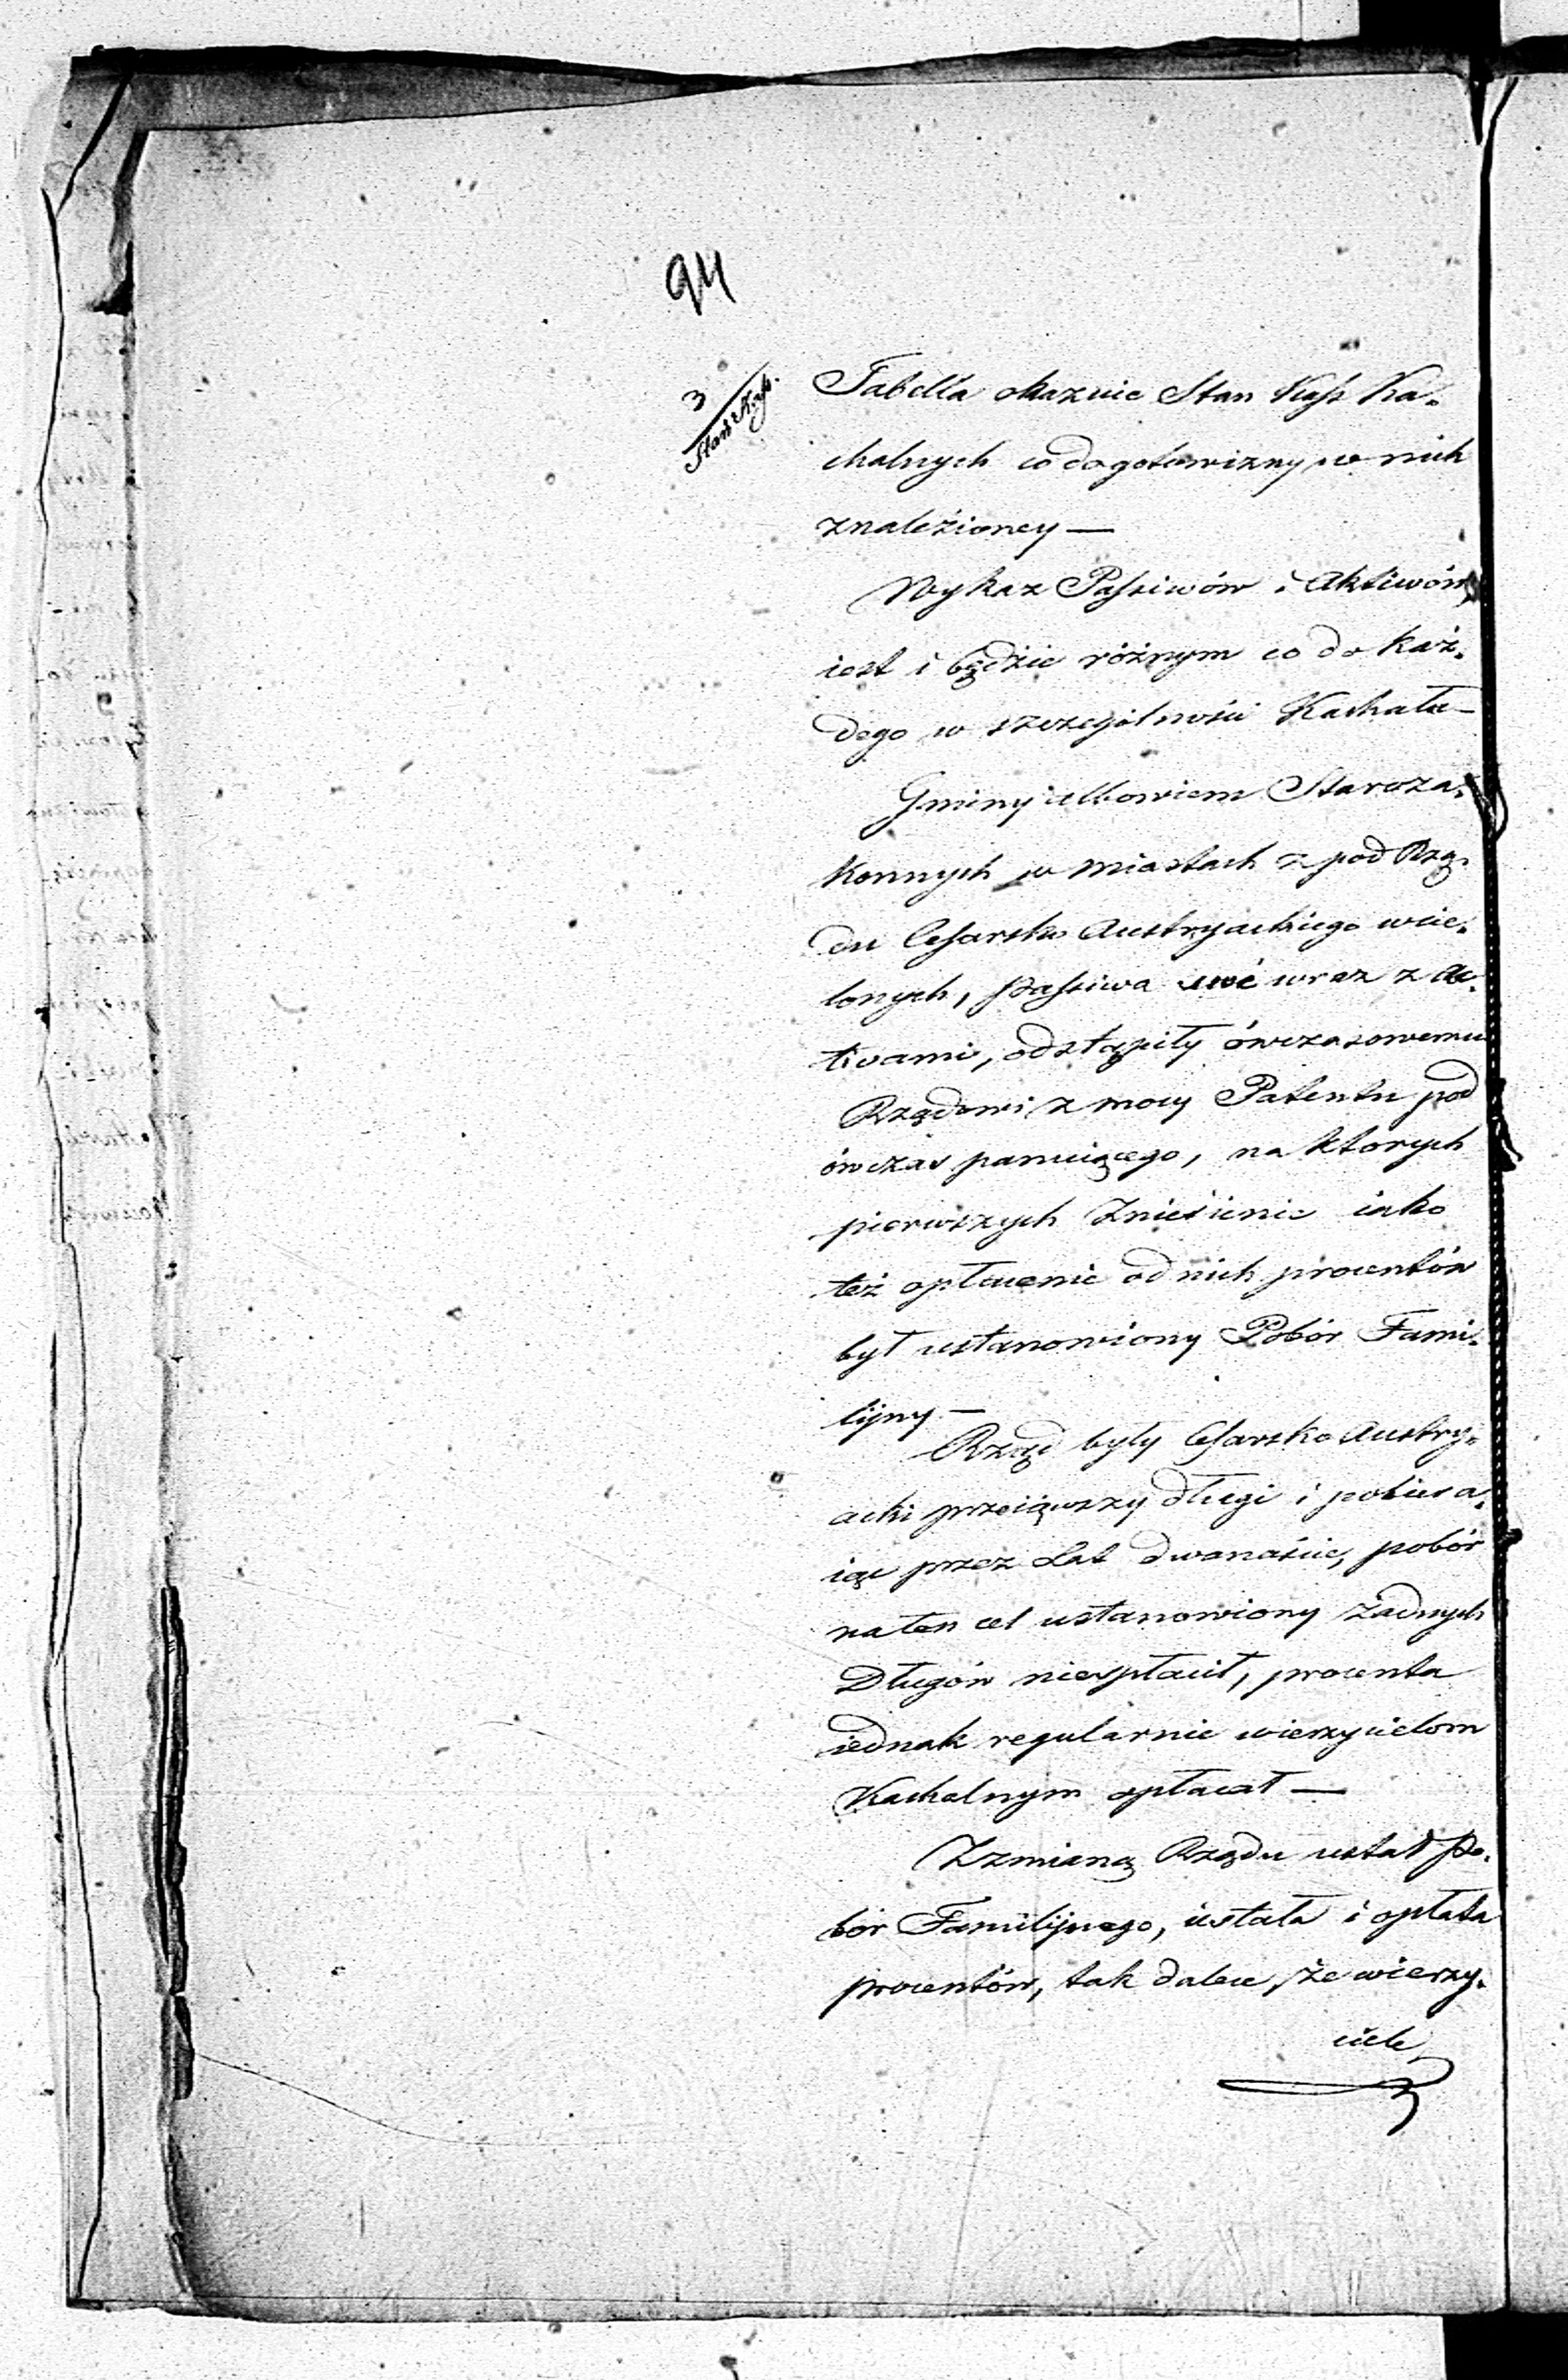 94
3
Stan Kass.
Tabella okazuie Stan Kass Ka-
chalnych co do gotowizny w nich
znaleźioney —
Wykaz Passiwów i Aktiwów
iest i będzie różnym co do każ-
dego w szczególności Kachału —
Gminy albowiem Staroza-
konnych w miastach z pod Rzą-
du Cesarsko Austryackiego wcie-
lonych, Passiwa swé wraz z Ac-
tivami, odstąpiły ówczasowemu
Rządowi z mocy Patentu pod
ówczas panuiącego, na ktorych
pierwszych Znieśienie iako
też opłacenie od nich procentów
był ustanowiony Pobór Fami-
lijny —
Rząd były Cesarsko Austry-
acki przeiąwszy długi i pobiera-
iąc przez Lat dwanaście, pobór
na ten cel ustanowiony żadnych
Długów niespłacił, procenta
iednak regularnie wierzycielom
Kachalnym opłacał —
Z zmianą Rządu ustał Po-
bór Familijnego, ustała i opłata
procentów, tak dalece, że wierzy-
ciele